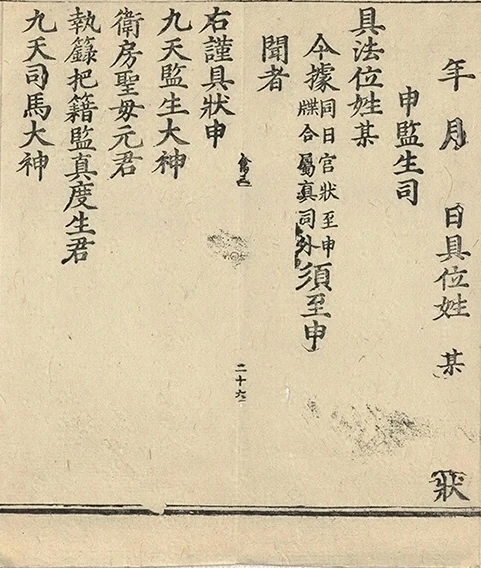 年 月 日具位姓 某 狀
申監生司
具法位姓某
今據同日官狀至申牒合屬真司外須至申
聞者
禽五
二十六
右謹具狀申
九天監生大神
衛房聖母元君
執籙把籍監真度生君
九天司馬大神